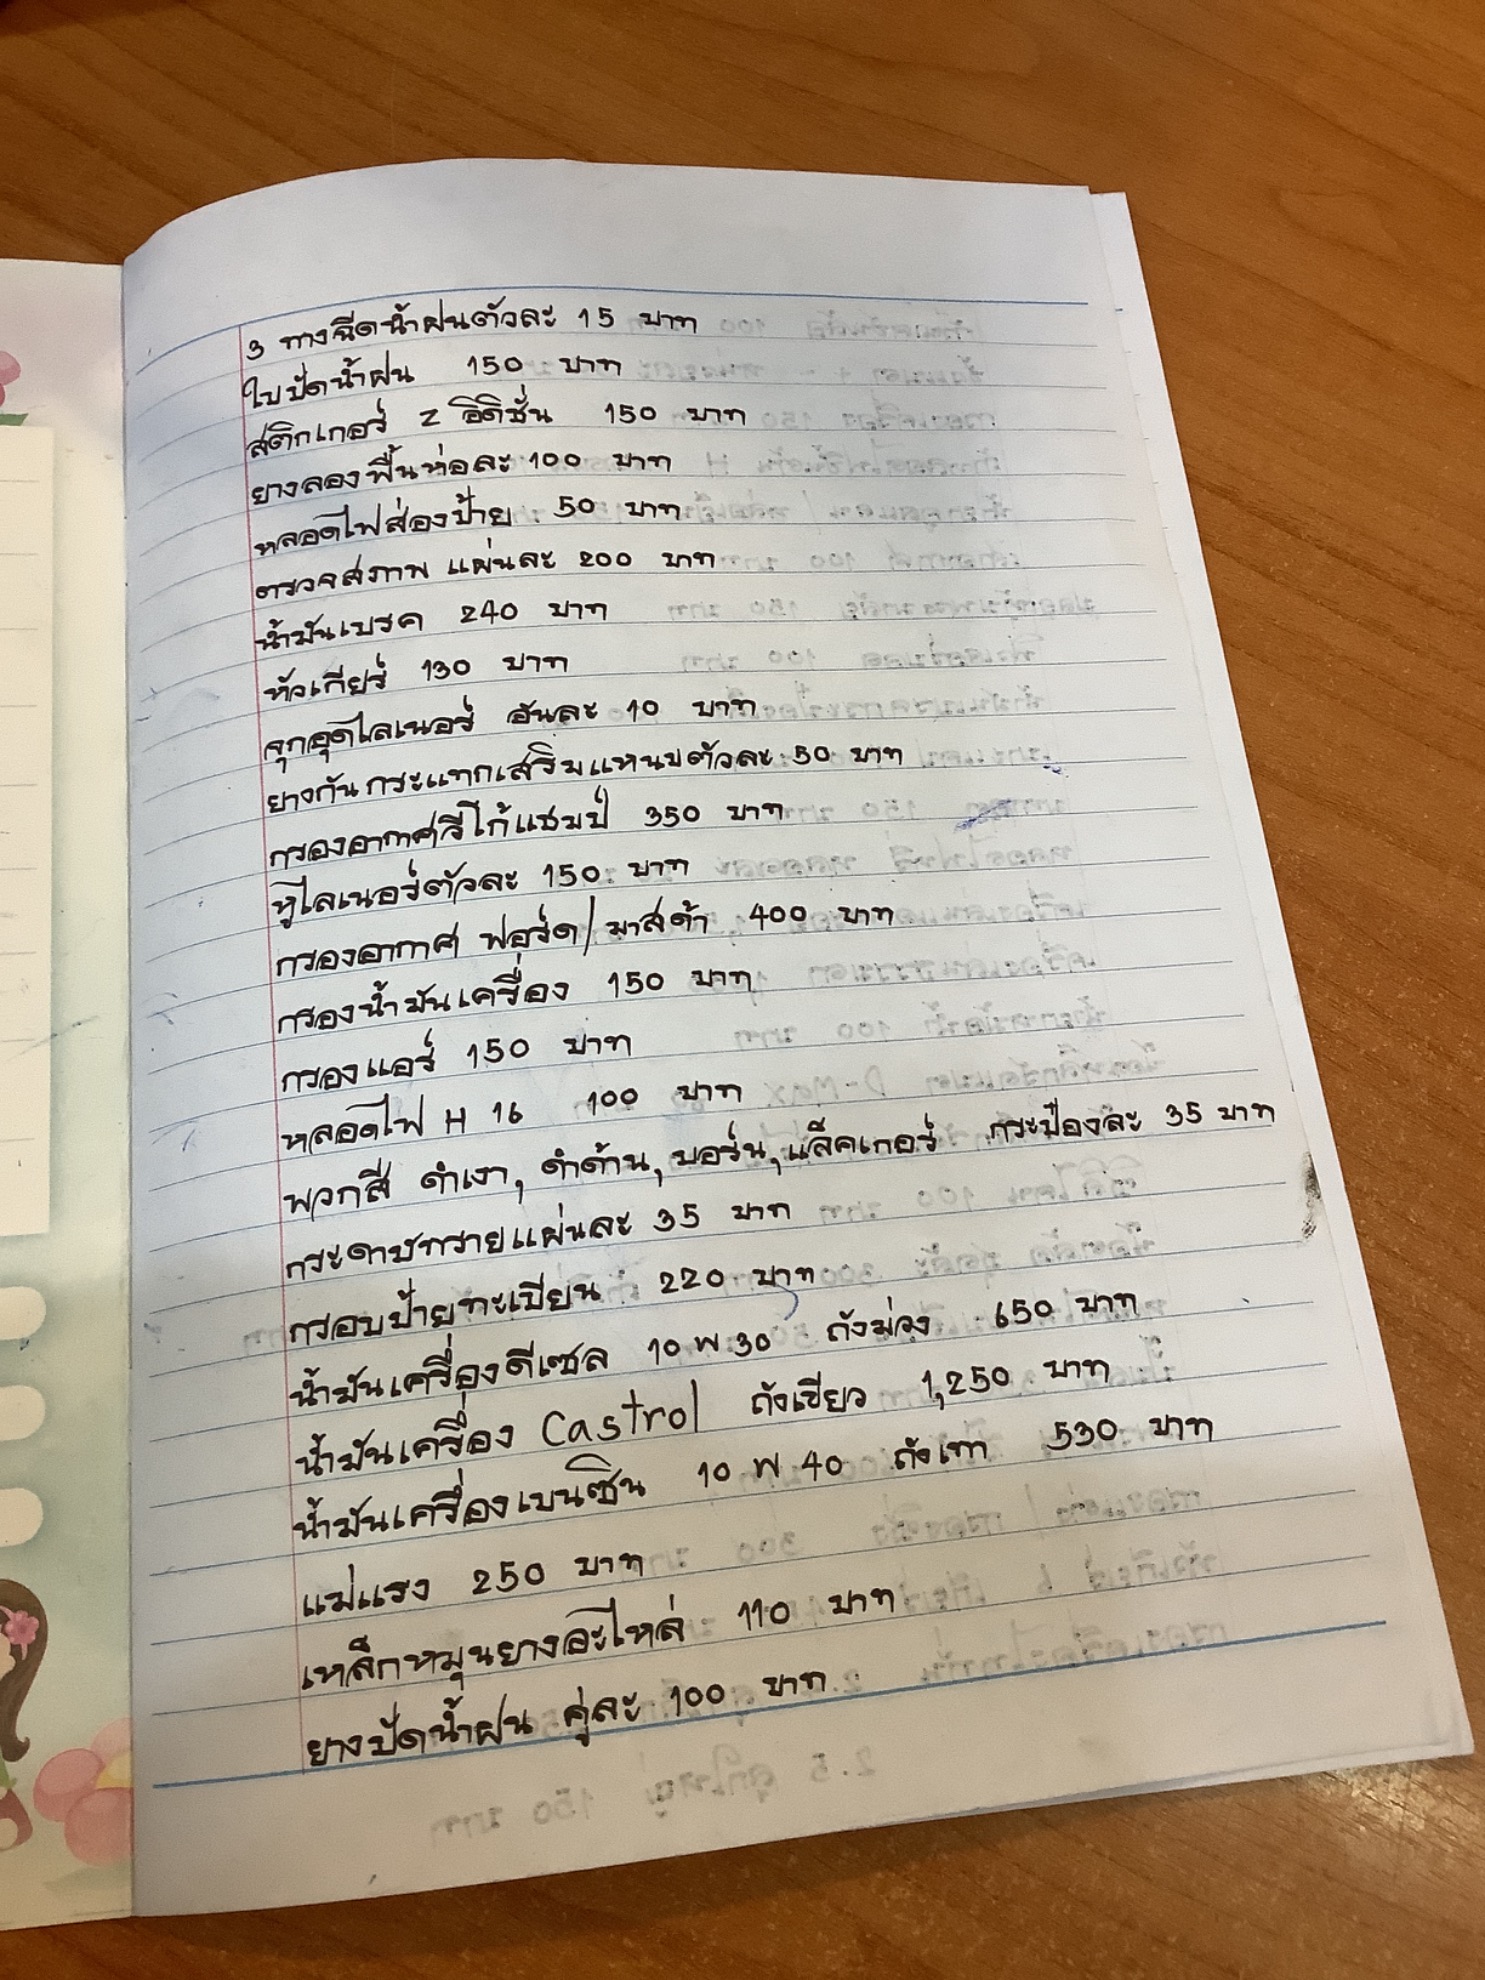 3 ทางฉีดน้ำฝนตัวละ 15 บาท
ใบปัดน้ำฝน 150 บาท
สติกเกอร์ Z อิดิชั่น 150 บาท
ยางลองพื้นห่อละ 100 บาท
หลอดไฟส่องป้าย 50 บาท
ตรวจสภาพ แผ่นละ 200 บาท
น้ำมันเบรค 240 บาท
หัวเกียร์ 130 บาท
จุกอุดไลเนอร์ อันละ 10 บาท
ยางกันกระแทกเสริมแหนบตัวละ 50 บาท
กรองอากาศวีโก้แชมป์ 350 บาท
หูไลเนอร์ตัวละ 150 บาท
กรองอากาศ ฟอร์ด/มาสด้า 400 บาท
กรองน้ำมันเครื่อง 150 บาท
กรองแอร์ 150 บาท
หลอดไฟ H 16 100 บาท
พวกสี ดำเงา, ดำด้าน, บอร์น, แล็คเกอร์ กระป๋องละ 35 บาท
กระดาษทรายแผ่นละ 35 บาท
กรอบป้ายทะเบียน 220 บาท
น้ำมันเครื่องดีเซล 10 W 30 ถังม่วง 650 บาท
น้ำมันเครื่อง Castrol ถังเขียว 1,250 บาท
น้ำมันเครื่องเบนซิน 10 W 40 ถังเทา 530 บาท
แม่แรง 250 บาท
เหล็กหมุนยางอะไหล่ 110 บาท
ยางปัดน้ำฝน คู่ละ 100 บาท